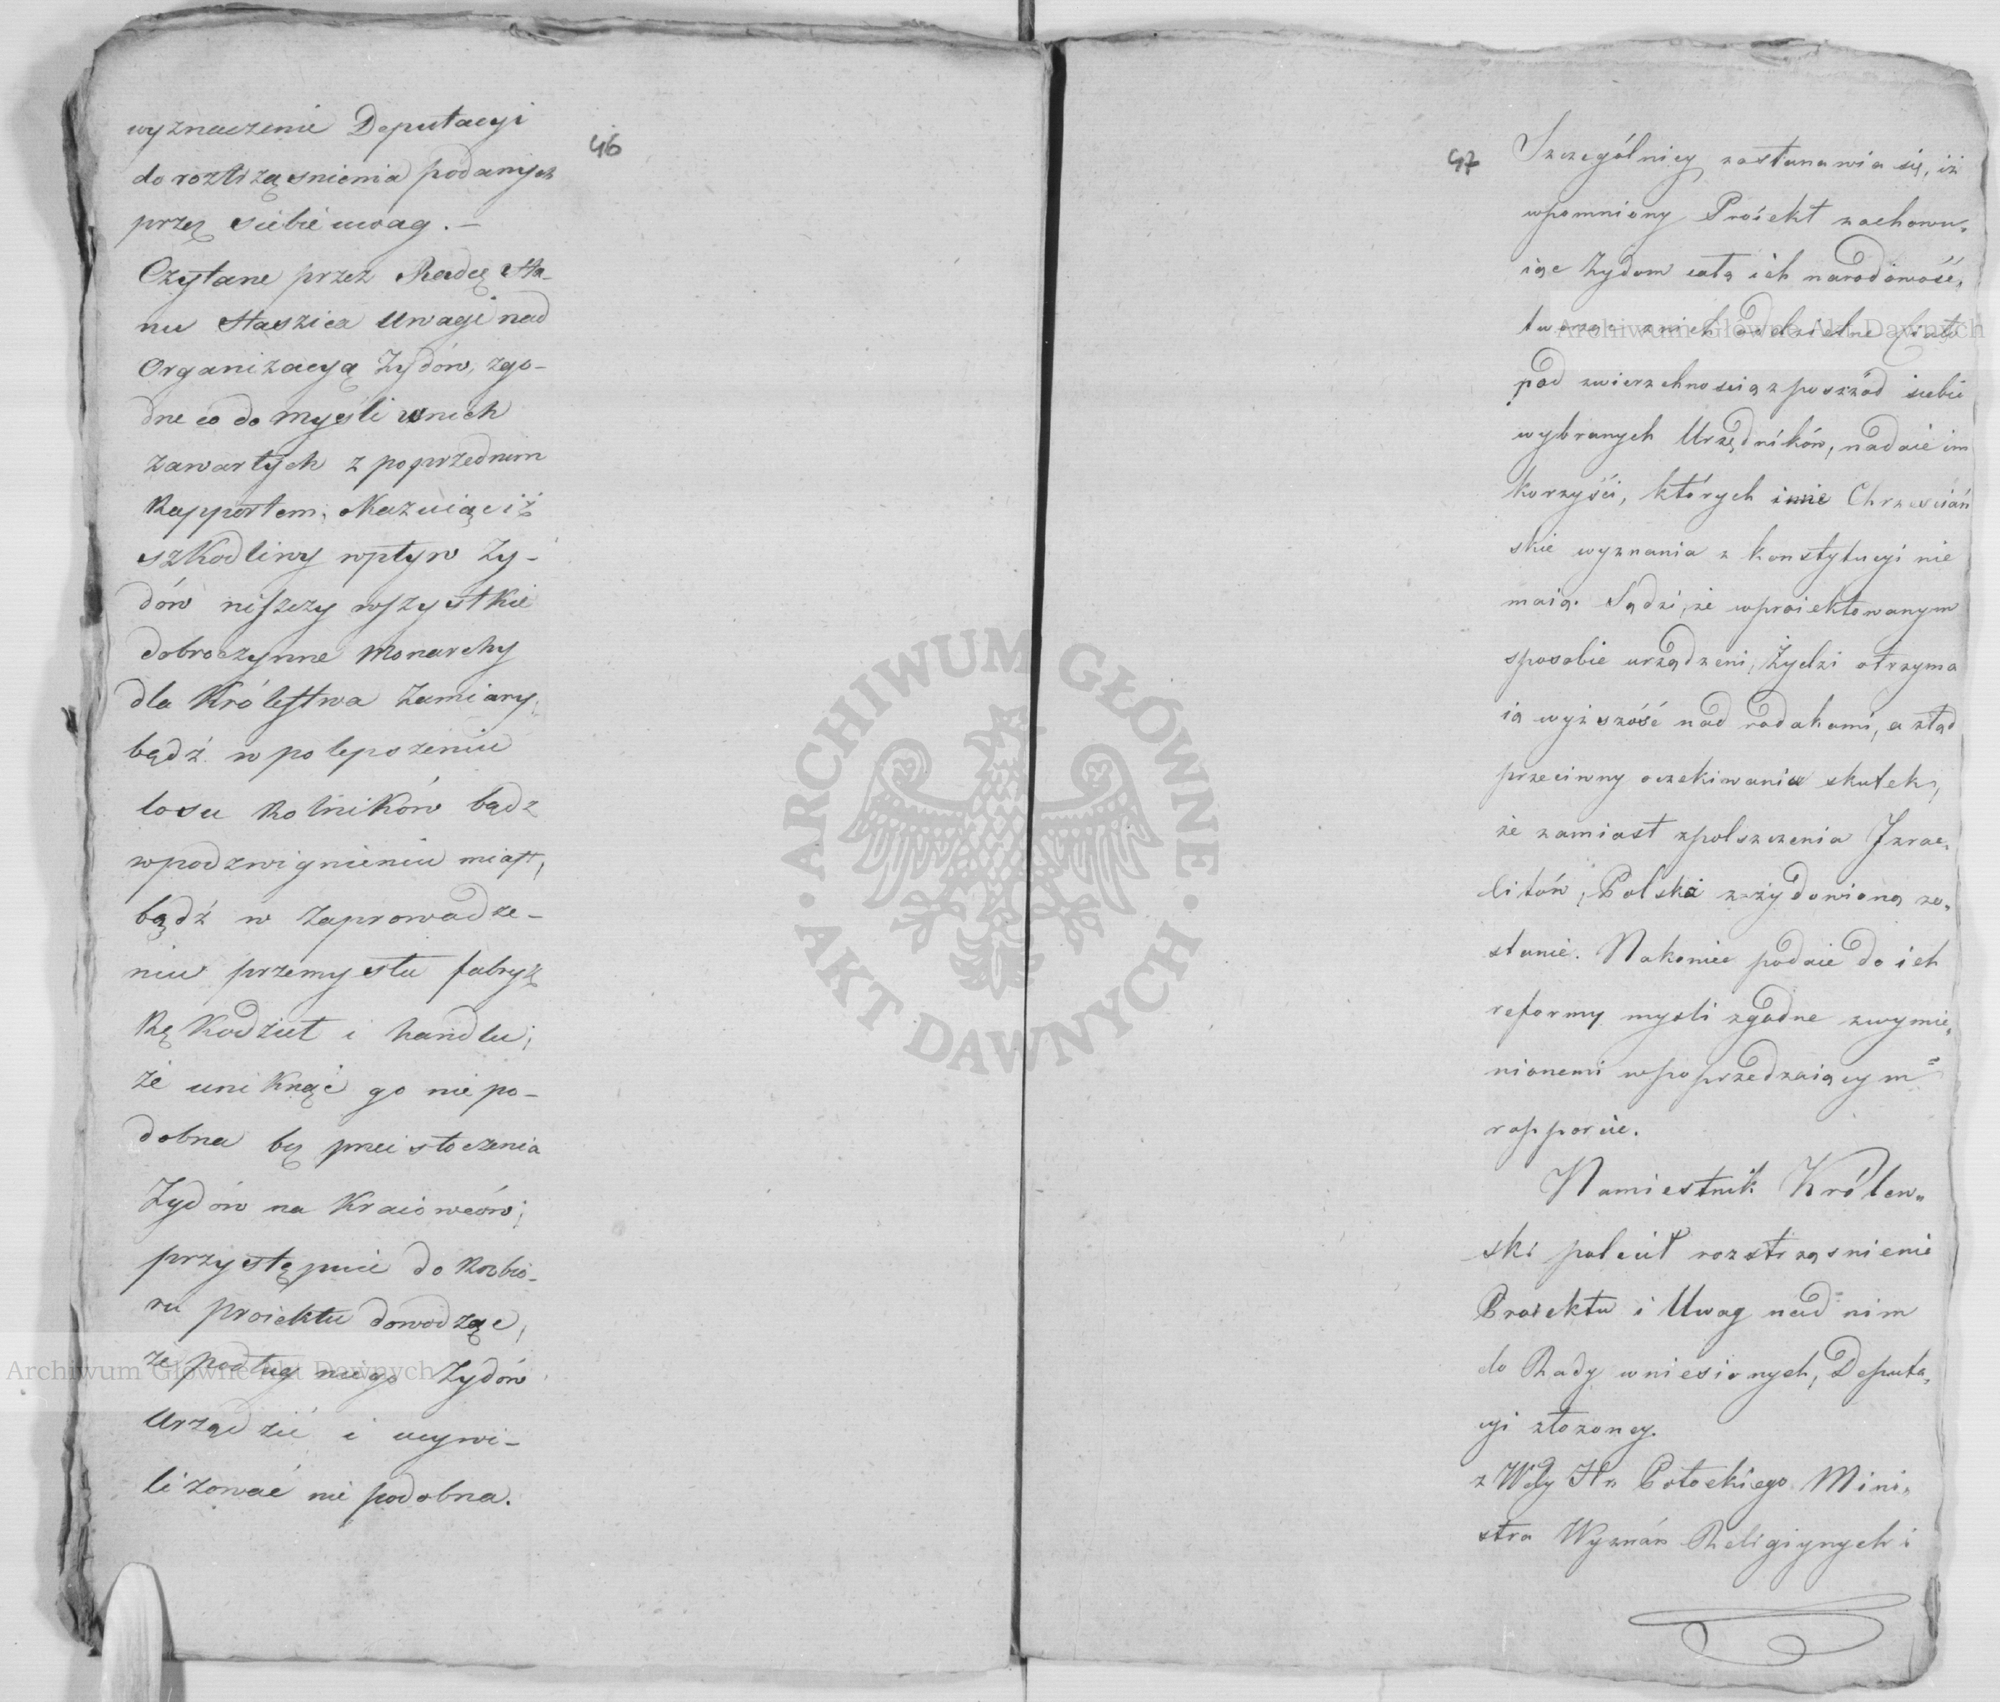 46
wyznaczenie Deputacyi
do roztrząsnienia podanych
przez siebie uwag. –
Czytane przez Radcę Sta-
nu Staszica Uwagi nad
Organizacyą Żydów, zgo-
dne co do myśli w nich
zawartych z poprzednim
Rapportem. Maz iż
szkodliwy wpływ Ży-
dów niszczy wszystkie
dobroczynne Monarchy
dla Królestwa Zamiary,
bądź w polepszeniu
losu Rolników bądz
w podzwignieniu miast,
bądź w Zaprowadze-
niu przemysłu fabryk
Rękodzieł i handlu;
że uniknąć go niepo-
dobna bez przeistoczenia
Żydów na Kraiowców;
przystępuie do Rozbio-
ru proiektu dowodząc,
że podług niego Żydów
Urządzić i ucywi-
lizować nie podobna.
47
Szczególniey zastanawia się, iż
wpomniony Proiekt zachowu-
iąc Żydom całą ich narodowość,
tworząc z nich oddzielne Ciało
pod zwierzchnością z poszzód siebie
wybranych Urzędników, nadaie im
korzyści, których inne Chrześciań
skie wyznania z konstytucyi nie
maią. Sądzi, że w proiektowanym
sposobie urządzeni, Żydzi otrzyma
ią wyższość nad rodakami, a ztąd
przeciwny oczekiwania skutek,
że zamiast spolszczenia Izrae-
litów, Polska zżydowioną zo-
stanie. Nakoniec podaie do ich
reformy mysli zgodne z wymie-
nionemi w poprzedzaiącym
rapporcie.
Namiestnik Królew-
ski polecił rozstrząsnienie
Proiektu i Uwag nad nim
do Rady wniesionych, Deputa-
cyi złozoney.
z Wgo Hr. Potockiego Mini-
stra Wyznań Religiynych i
Archiwum Główne Akt Dawnych
Archiwum Główne Akt Dawnych
ARCHIWUM GŁÓWNE
AKT DAWNYCH